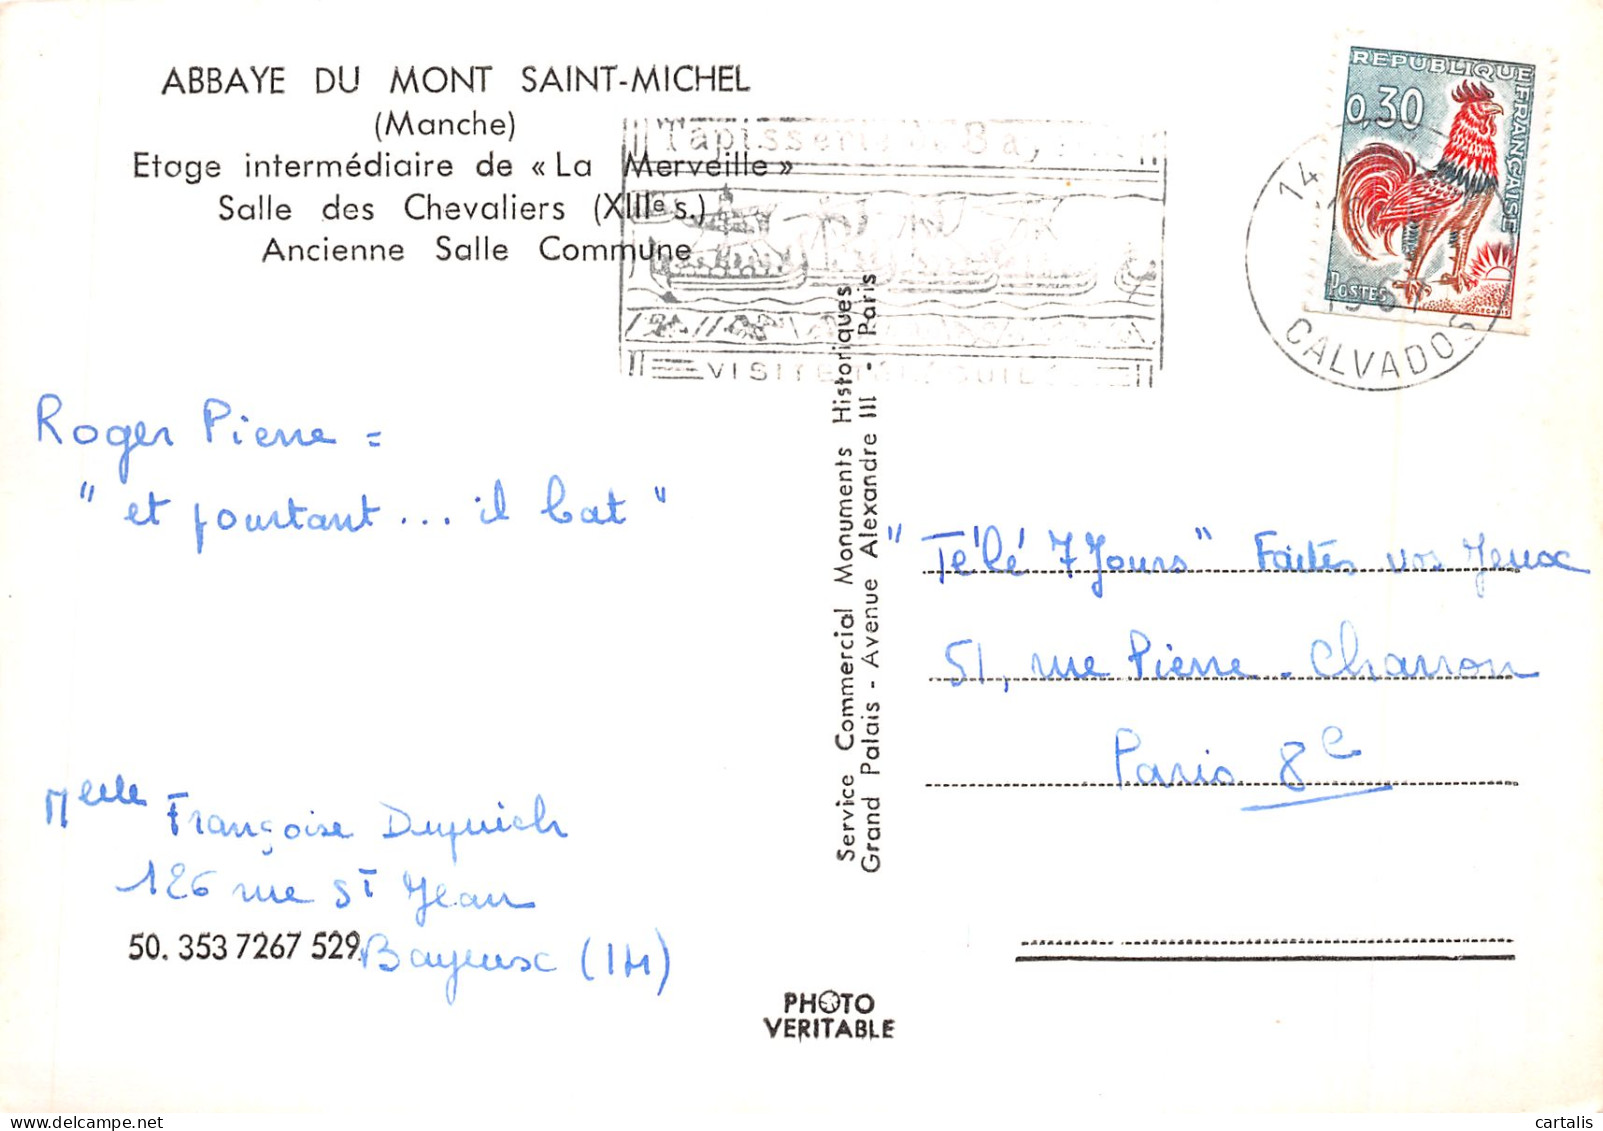 ABBAYE DU MONT SAINT-MICHEL
(Manche)
Etage intermédiaire de « La Merveille »
Salle des Chevaliers (XIIIe s.)
Ancienne Salle Commune
Tapisserie de Bayeux
VISITE
REPUBLIQUE FRANÇAISE
0,30
POSTES
DECARIS
14
CALVADOS
Roger Pierre =
" et pourtant ... il bat "
Service Commercial Monuments Historiques
Grand Palais - Avenue Alexandre III - Paris
" Télé 7 Jours " Faites vos Jeux
51, rue Pierre - Charron
Paris 8e
Melle Françoise
126 rue St Jean
50. 353 7267 529
Bayeux (14)
PHOTO
VERITABLE
cartalis